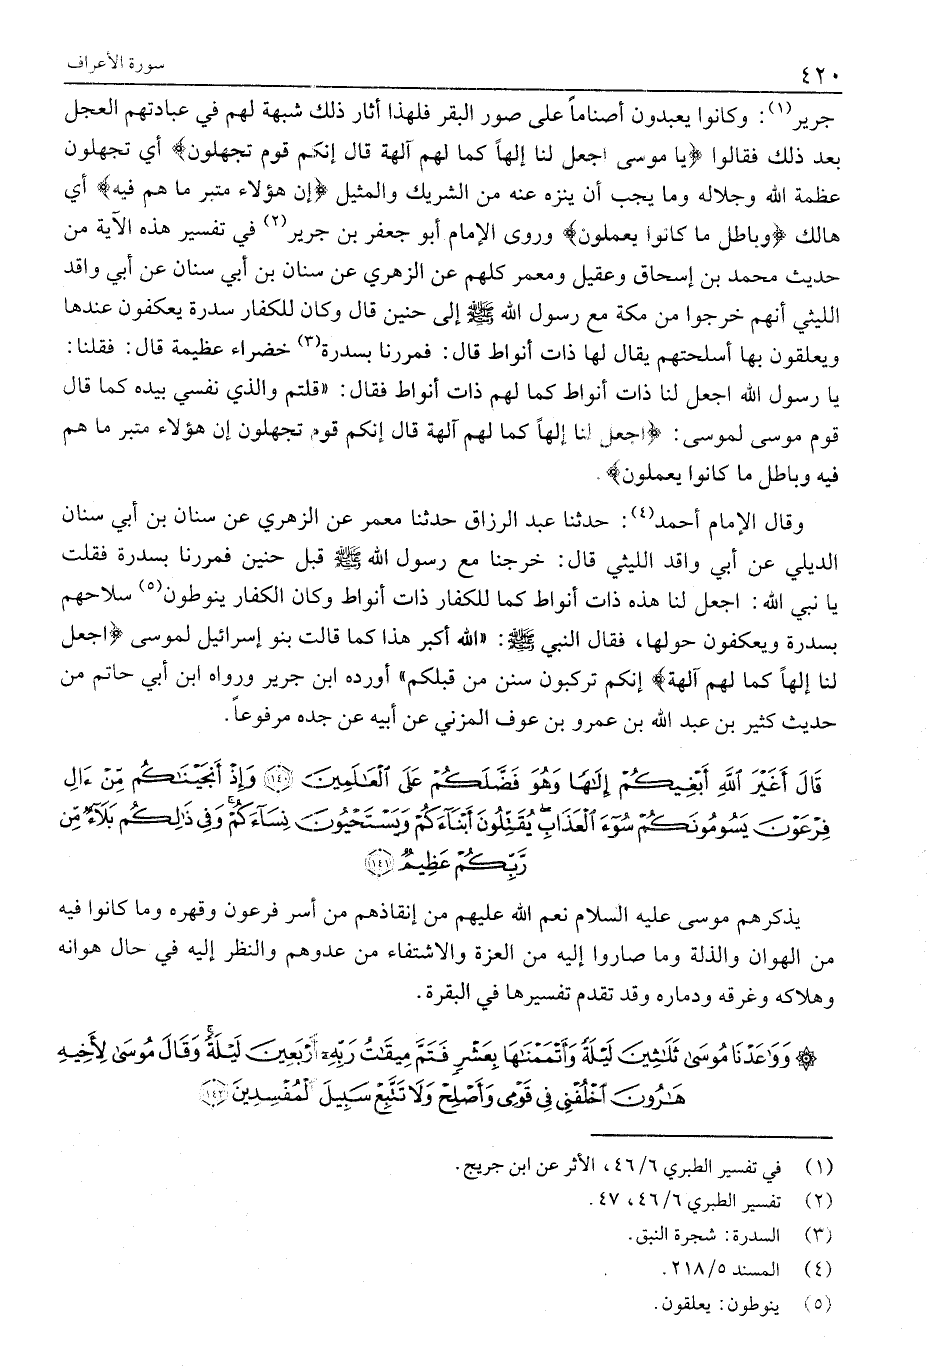 سورة الأعراف
٤٢٠
جرير(١): وكانوا يعبدون أصناماً على صور البقر فلهذا أثار ذلك شبهة لهم في عبادتهم العجل
بعد ذلك فقالوا ﴿يا موسى اجعل لنا إلهاً كما لهم آلهة قال إنكم قوم تجهلون﴾ أي تجهلون
عظمة الله وجلاله وما يجب أن ينزه عنه من الشريك والمثيل ﴿إن هؤلاء متبر ما هم فيه﴾ أي
هالك ﴿وباطل ما كانوا يعملون﴾ وروى الإمام أبو جعفر بن جرير(٢) في تفسير هذه الآية من
حديث محمد بن إسحاق وعقيل ومعمر كلهم عن الزهري عن سنان بن أبي سنان عن أبي واقد
الليثي أنهم خرجوا من مكة مع رسول الله ﷺ إلى حنين قال وكان للكفار سدرة يعكفون عندها
ويعلقون بها أسلحتهم يقال لها ذات أنواط قال: فمررنا بسدرة(٣) خضراء عظيمة قال: فقلنا:
يا رسول الله اجعل لنا ذات أنواط كما لهم ذات أنواط فقال: «قلتم والذي نفسي بيده كما قال
قوم موسى لموسى: ﴿اجعل لنا إلهاً كما لهم آلهة قال إنكم قوم تجهلون إن هؤلاء متبر ما هم
فيه وباطل ما كانوا يعملون﴾.
وقال الإمام أحمد(٤): حدثنا عبد الرزاق حدثنا معمر عن الزهري عن سنان بن أبي سنان
الديلي عن أبي واقد الليثي قال: خرجنا مع رسول الله ﷺ قبل حنين فمررنا بسدرة فقلت
يا نبي الله: اجعل لنا هذه ذات أنواط كما للكفار ذات أنواط وكان الكفار ينوطون(٥) سلاحهم
بسدرة ويعكفون حولها، فقال النبي ﷺ: «الله أكبر هذا كما قالت بنو إسرائيل لموسى ﴿اجعل
لنا إلهاً كما لهم آلهة﴾ إنكم تركبون سنن من قبلكم» أورده ابن جرير ورواه ابن أبي حاتم من
حديث كثير بن عبد الله بن عمرو بن عوف المزني عن أبيه عن جده مرفوعاً.
قَالَ أَغَيْرَ ٱللَّهِ أَبْغِيكُمْ إِلَٰهًا وَهُوَ فَضَّلَكُمْ عَلَى ٱلْعَٰلَمِينَ ١٤٠ وَإِذْ أَنجَيْنَٰكُم مِّنْ ءَالِ
فِرْعَوْنَ يَسُومُونَكُمْ سُوٓءَ ٱلْعَذَابِ ۖ يُقَتِّلُونَ أَبْنَآءَكُمْ وَيَسْتَحْيُونَ نِسَآءَكُمْ ۚ وَفِى ذَٰلِكُم بَلَآءٌ مِّن
رَّبِّكُمْ عَظِيمٌ ١٤١
يذكرهم موسى عليه السلام نعم الله عليهم من إنقاذهم من أسر فرعون وقهره وما كانوا فيه
من الهوان والذلة وما صاروا إليه من العزة والاشتفاء من عدوهم والنظر إليه في حال هوانه
وهلاكه وغرقه ودماره وقد تقدم تفسيرها في البقرة.
۞ وَوَٰعَدْنَا مُوسَىٰ ثَلَٰثِينَ لَيْلَةً وَأَتْمَمْنَٰهَا بِعَشْرٍ فَتَمَّ مِيقَٰتُ رَبِّهِۦٓ أَرْبَعِينَ لَيْلَةً ۚ وَقَالَ مُوسَىٰ لِأَخِيهِ
هَٰرُونَ ٱخْلُفْنِى فِى قَوْمِى وَأَصْلِحْ وَلَا تَتَّبِعْ سَبِيلَ ٱلْمُفْسِدِينَ ١٤٢
(١) في تفسير الطبري ٤٦/٦، الأثر عن ابن جريج.
(٢) تفسير الطبري ٤٦/٦، ٤٧.
(٣) السدرة: شجرة النبق.
(٤) المسند ٢١٨/٥.
(٥) ينوطون: يعلقون.